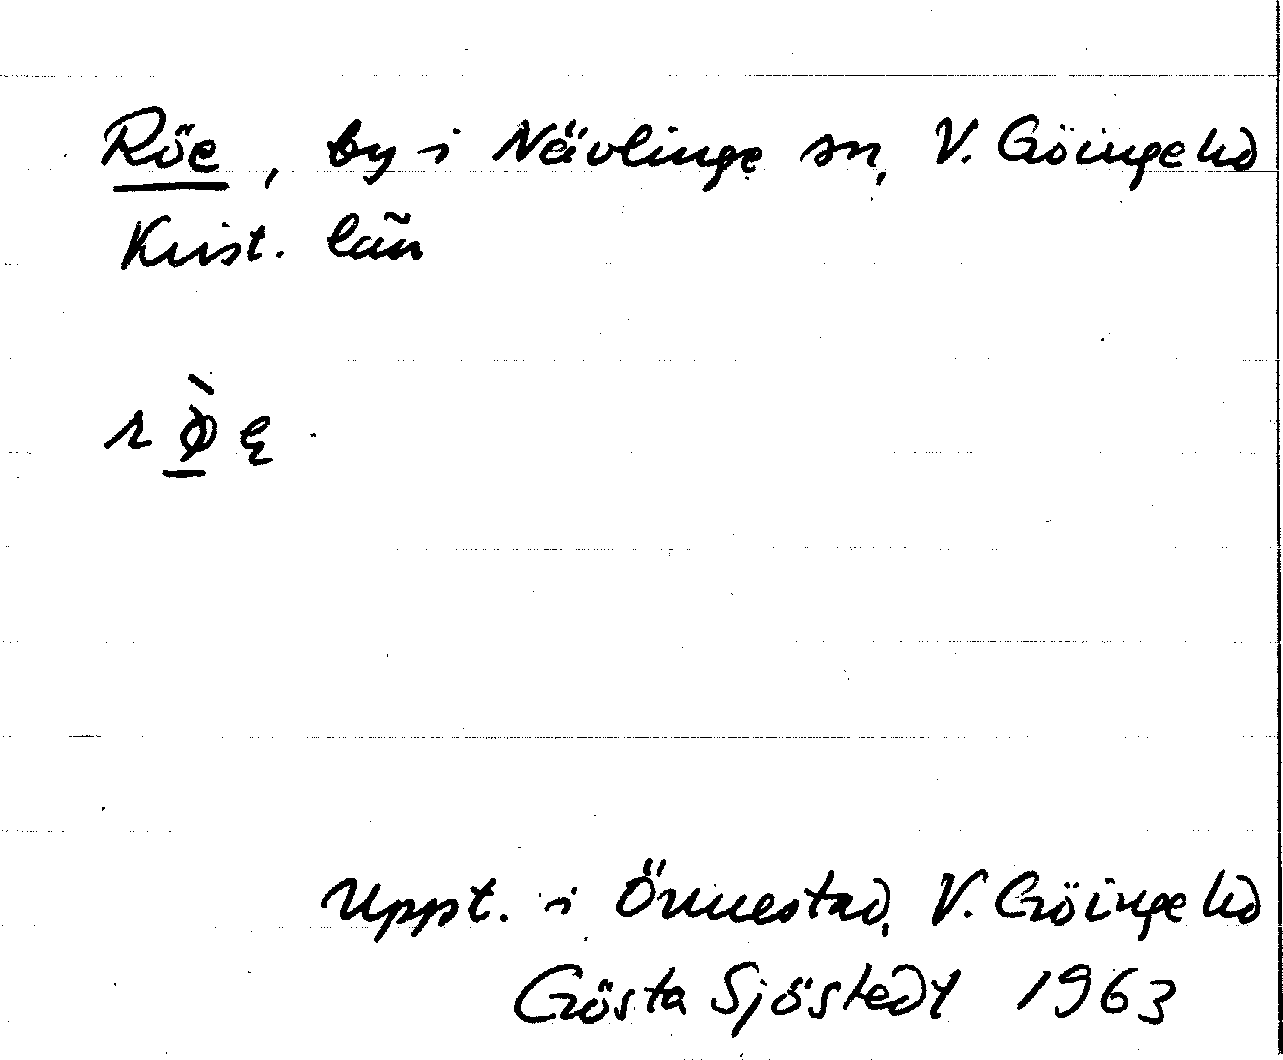 Röe, by i Nävlinge sn, V. Göinge hd
Krist. län
Uppt. i Önnestad, V. Göinge hd
Gösta Sjöstedt 1963